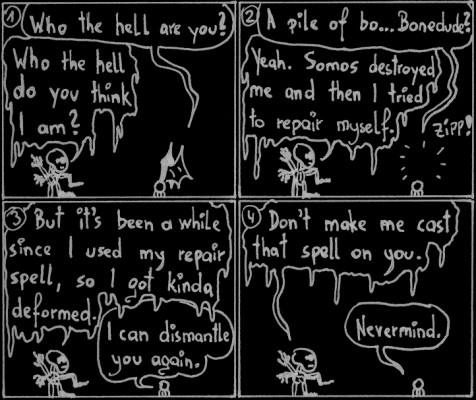 1 Who the hell are you?
Who the hell
do you think
I am?
2 A pile of bo... Bonedude?
Yeah. Somos destroyed
me and then I tried
to repair myself.
ZIPP!
3 But it's been a while
since I used my repair
spell, so I got kinda
deformed.
I can dismantle
you again.
4 Don't make me cast
that spell on you.
Nevermind.